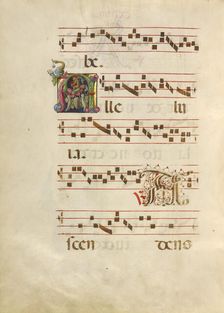 be.
A lle lu
ia.
A
scen dens